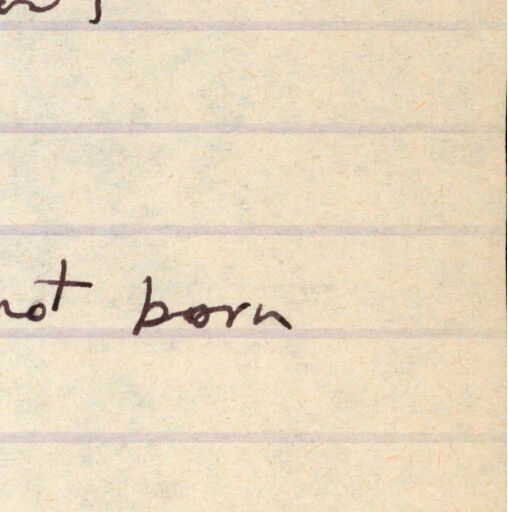 not born